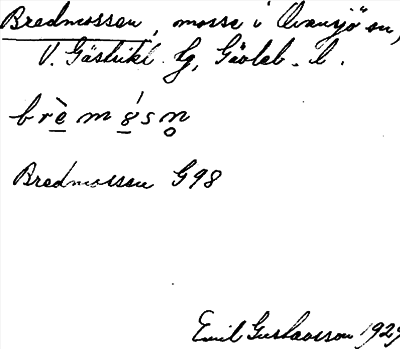 Bredmossen, mosse i Ovansjö sn,
V. Gästrikl. hg, Gävleb. l.
brèmósn
Bredmossen G98
Emil Gustavsson 1929